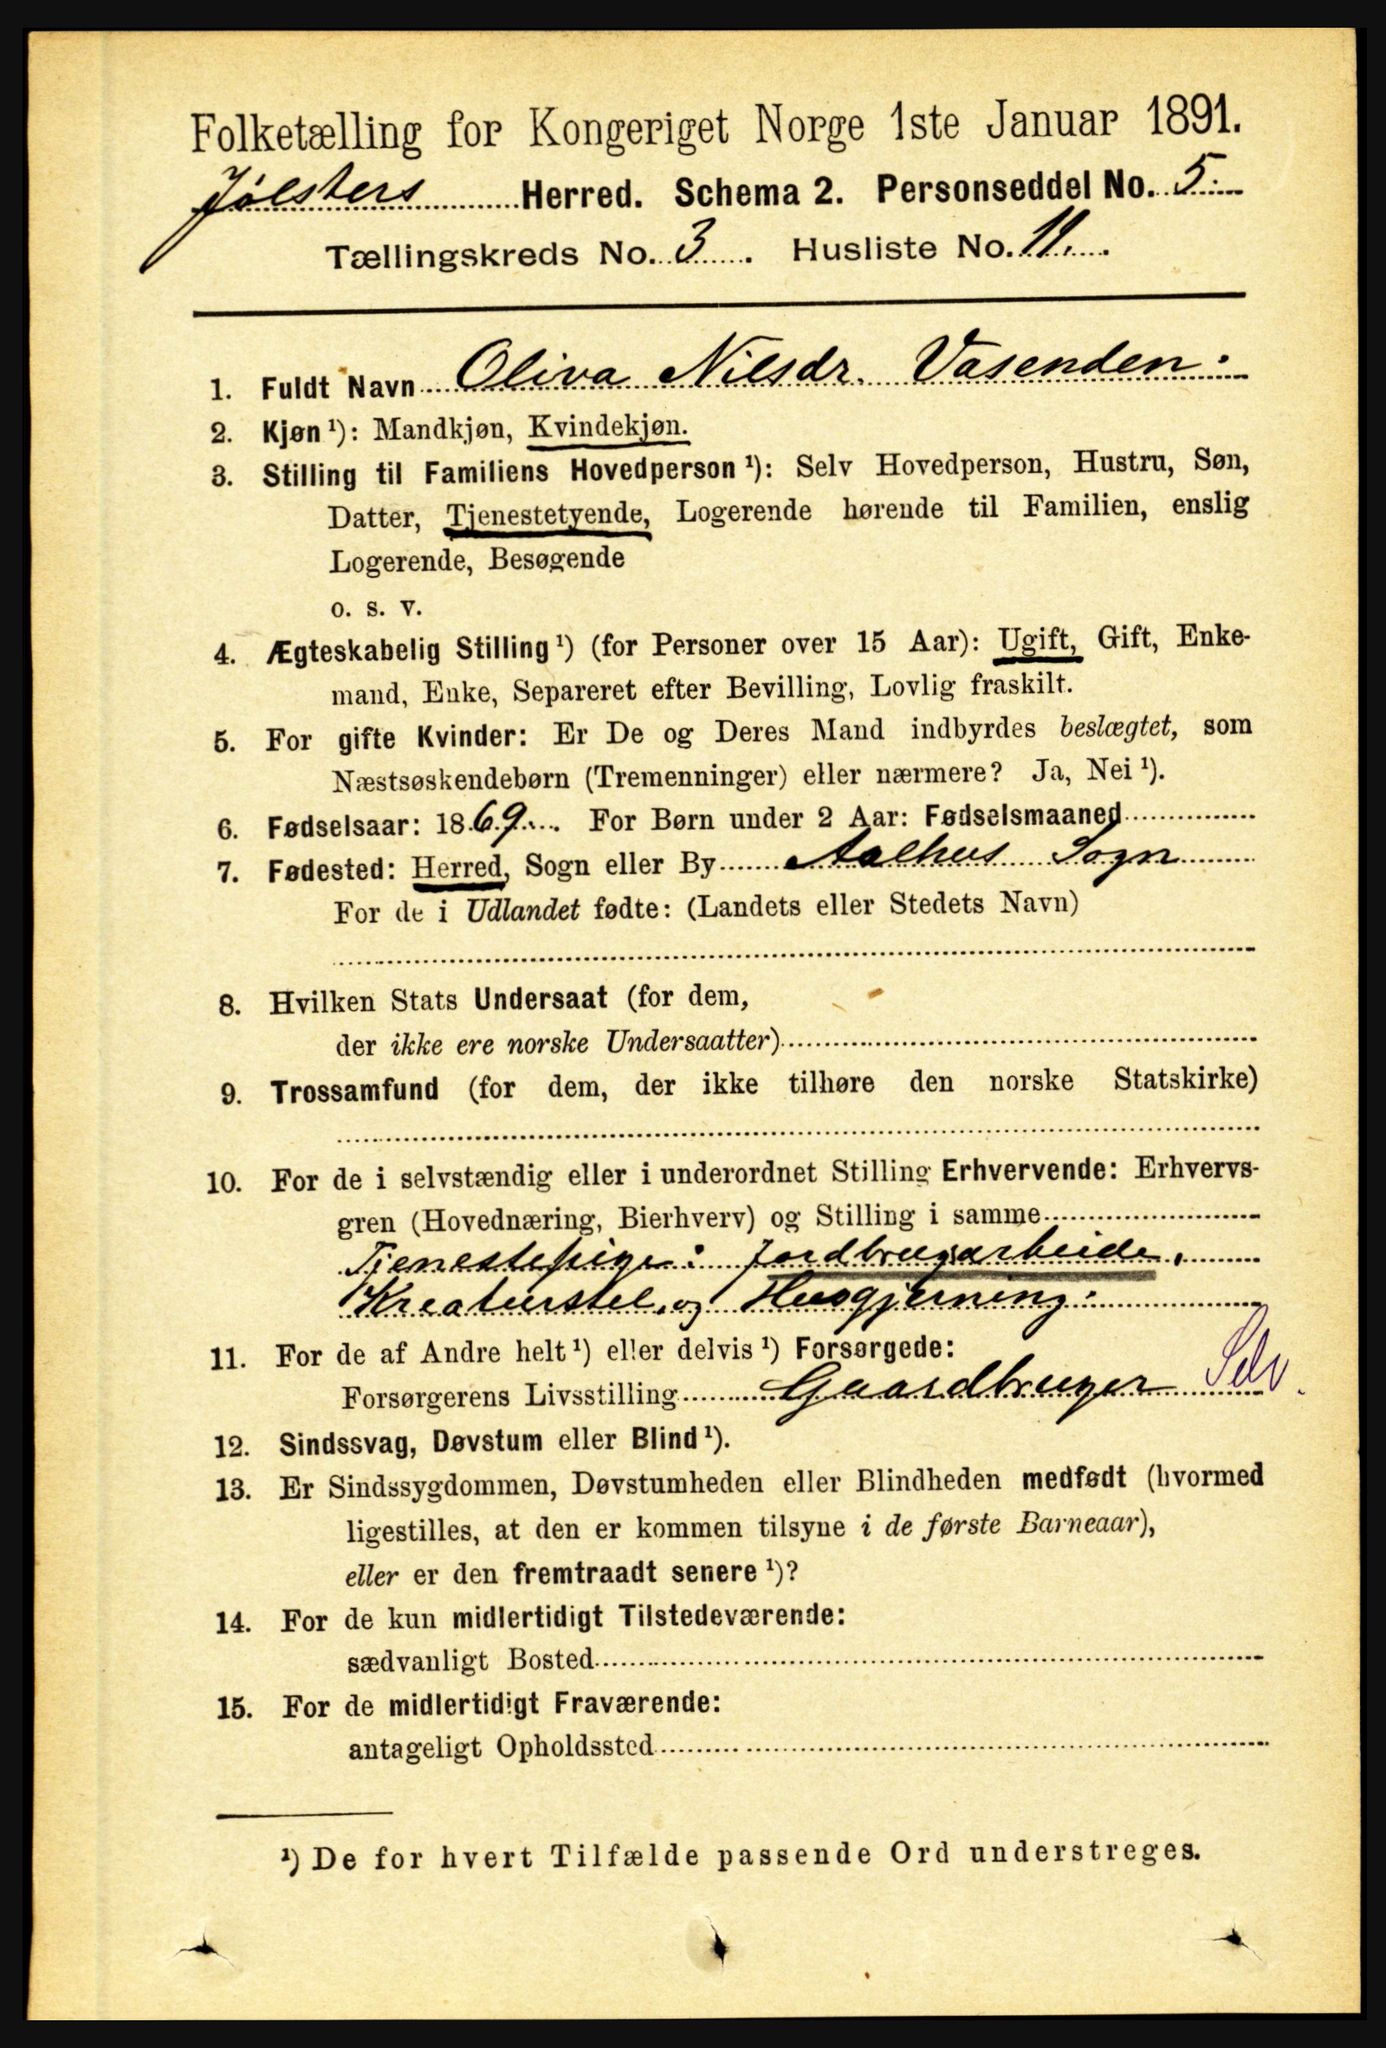 Folketælling for Kongeriget Norge 1ste Januar 1891.
Jølsters Herred. Schema 2. Personseddel No. 5.
Tællingskreds No. 3. Husliste No. 11.
1. Fuldt Navn Oliva Nilsdr. Vasenden.
2. Kjøn ¹): Mandkjøn, Kvindekjøn.
3. Stilling til Familiens Hovedperson ¹): Selv Hovedperson, Hustru, Søn,
Datter, Tjenestetyende, Logerende hørende til Familien, enslig
Logerende, Besøgende
o. s. v.
4. Ægteskabelig Stilling ¹) (for Personer over 15 Aar): Ugift, Gift, Enke-
mand, Enke, Separeret efter Bevilling, Lovlig fraskilt.
5. For gifte Kvinder: Er De og Deres Mand indbyrdes beslægtet, som
Næstsøskendebørn (Tremenninger) eller nærmere? Ja, Nei ¹).
6. Fødselsaar: 1869. For Børn under 2 Aar: Fødselsmaaned
7. Fødested: Herred, Sogn eller By Aalhus Sogn
For de i Udlandet fødte: (Landets eller Stedets Navn)
8. Hvilken Stats Undersaat (for dem,
der ikke ere norske Undersaatter)
9. Trossamfund (for dem, der ikke tilhøre den norske Statskirke)
10. For de i selvstændig eller i underordnet Stilling Erhvervende: Erhvervs-
gren (Hovednæring, Bierhverv) og Stilling i samme
Tjenestepige: Jordbrugsarbeide,
Kreaturstel, og Husgjerning.
11. For de af Andre helt ¹) eller delvis ¹) Forsørgede:
Forsørgerens Livsstilling Gaardbruger Selv.
12. Sindssvag, Døvstum eller Blind ¹).
13. Er Sindssygdommen, Døvstumheden eller Blindheden medfødt (hvormed
ligestilles, at den er kommen tilsyne i de første Barneaar),
eller er den fremtraadt senere ¹)?
14. For de kun midlertidigt Tilstedeværende:
sædvanligt Bosted
15. For de midlertidigt Fraværende:
antageligt Opholdssted
¹) De for hvert Tilfælde passende Ord understreges.